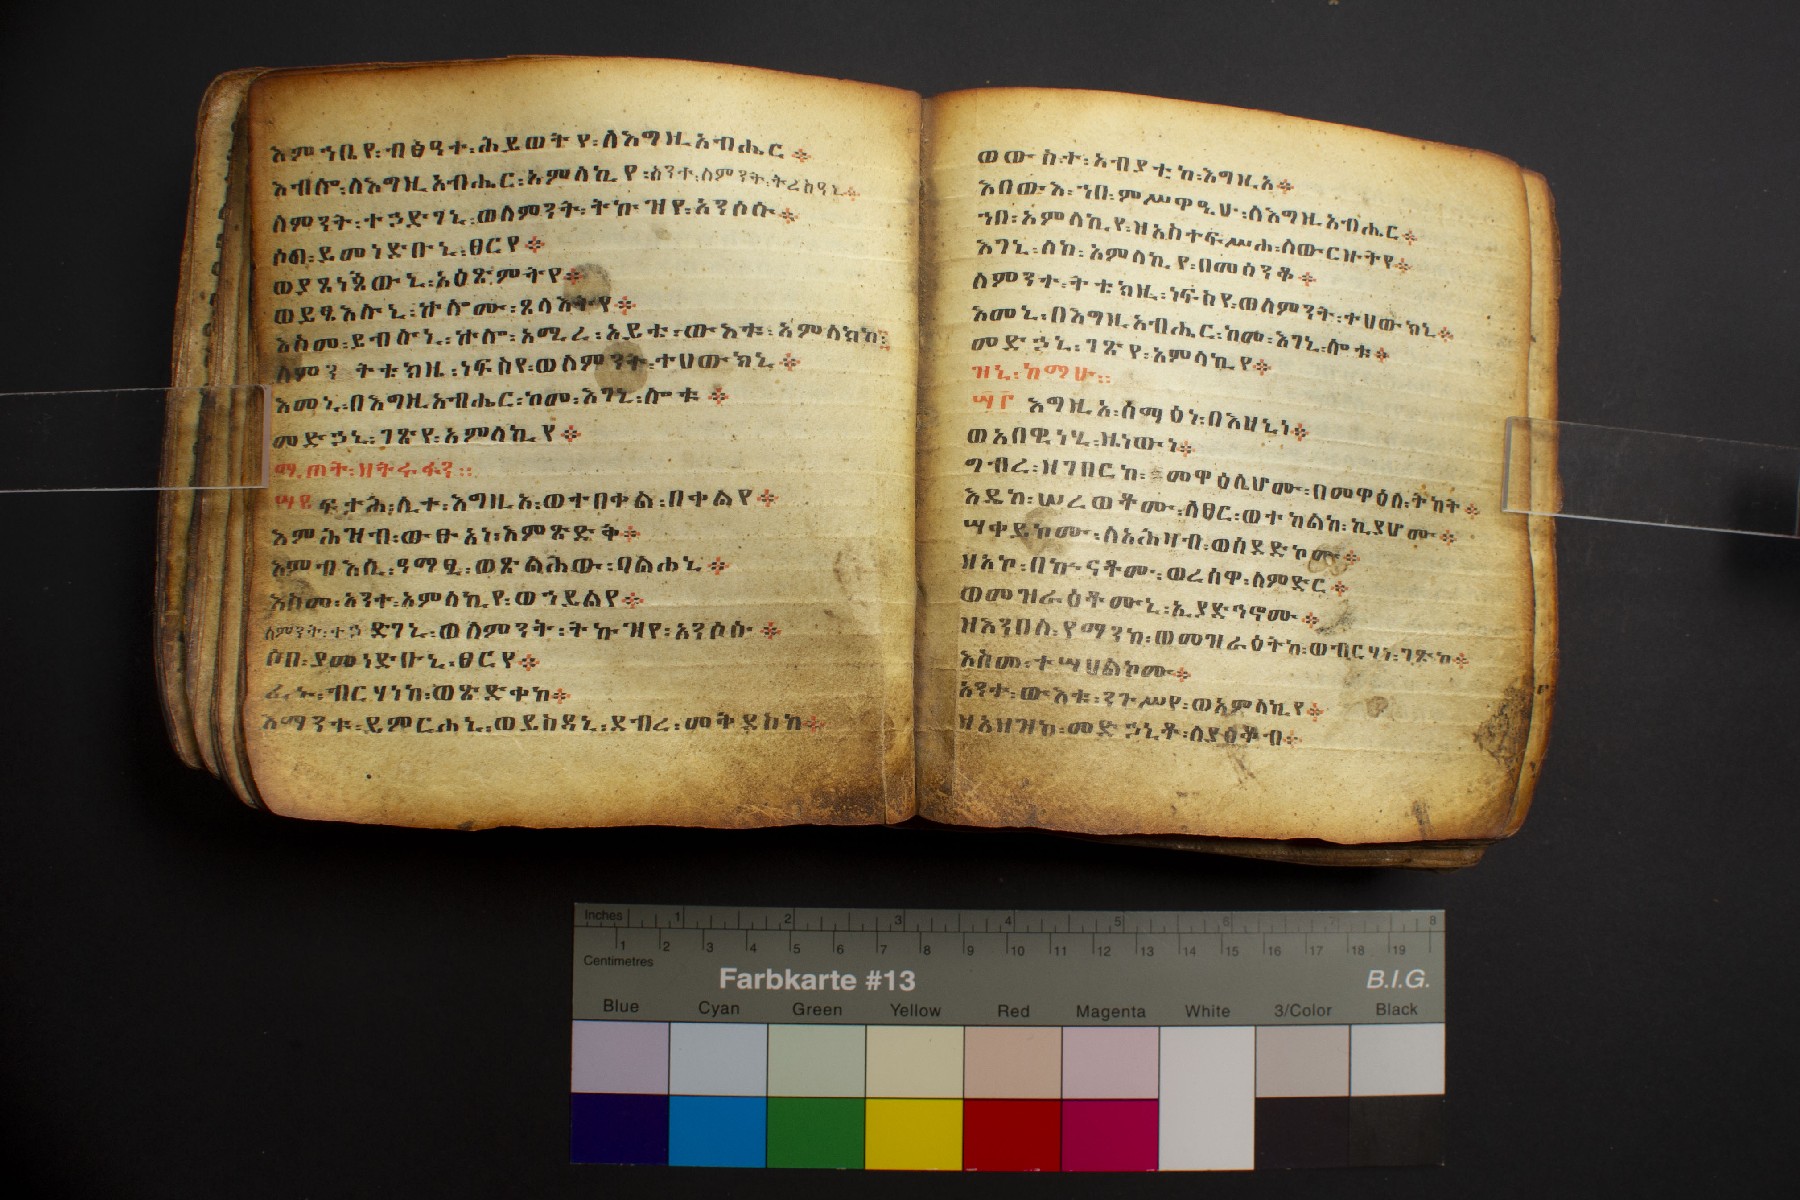 እምኀቤየ፡ብፅዓተ፡ሕይወትየ፡ለእግዚአብሔር፨
እብሎ፡ለእግዚአብሔር፡አምላኪየ፡አንተ፡ለምንት፡ትረስዓኒ፨
ለምንት፡ተኃድገኒ፡ወለምንት፡ትኩዝየ፡አንሶሱ፨
ሶበ፡ይመነድቡኒ፡ፀርየ፨
ወያጼነጰውኒ፡አዕጽምትየ፨
ወይፄእሉኒ፡ኵሎሙ፡ጸላእትየ፨
እስመ፡ይብሉኒ፡ኵሎ፡አሚረ፡አይቴ፡ውእቱ፡አምላክከ፨
ለምን ትቴክዚ፡ነፍስየ፡ወለምንት፡ተሀውክኒ፨
እመኒ፡በእግዚአብሔር፡ከመ፡እገኒ፡ሎቱ፨
መድኃኒ፡ገጽየ፡አምላኪየ፨
ሚጠት፡ዘትሩፋን፡፡
፵፪ ፍታሕ፡ሊተ፡እግዚአ፡ወተበቀል፡በቀልየ፨
እምሕዝብ፡ውፁአነ፡እምጽድቅ፨
እምብእሲ፡ዓማፂ፡ወጽልሕው፡ባልሐኒ፨
እስመ፡አንተ፡አምላኪየ፡ወኀይልየ፨
ለምንት፡ተኃድገኒ፡ወለምንት፡ትኩዝየ፡አንሶሱ፨
ሶበ፡ያመነድቡኒ፡ፀርየ፨
ፈኑ፡ብርሃነከ፡ወጽድቀከ፨
እማንቱ፡ይምርሐኒ፡ወይስዳኒ፡ደብረ፡መቅደስከ፨
ወውስተ፡አብያቲከ፡እግዚአ፨
እበውእ፡ኀበ፡ምሥዋዒሁ፡ለእግዚአብሔር፨
ኀበ፡አምላኪየ፡ዘአስተፍሥሐ፡ለውርዙትየ፨
እገኒ፡ለከ፡አምላኪየ፡በመሰንቆ፨
ለምንተ፡ትቴክዚ፡ነፍስየ፡ወለምንት፡ተሀውክኒ፨
እመኒ፡በእግዚአብሔር፡ከመ፡እገኒ፡ሎቱ፨
መድኃኒ፡ገጽየ፡አምላኪየ፨
ዝኒ፡ከማሁ፡፡
፵፫ እግዚአ፡ሰማዕነ፡በእዝኒነ፨
ወአበዊነሂ፡ዜነውነ፨
ግብረ፡ዘገበርከ፡በመዋዕሊሆሙ፡በመዋዕለ፡ትካት፨
እዴከ፡ሠረወቶሙ፡ለፀር፡ወተከልከ፡ኪያሆሙ፨
ሣቀይኮሙ፡ለአሕዛብ፡ወሰደድኮሙ፨
ዘአኮ፡በኲናቶሙ፡ወረሰዋ፡ለምድር፨
ወመዝራዕቶሙኒ፡ኢያድኅኖሙ፨
ዝእንበለ፡የማንከ፡ወመዝራዕትከ፡ወብርሃነ፡ገጽከ፨
እስመ፡ተሣሀልኮሙ፨
አንተ፡ውእቱ፡ንጉሥየ፡ወአምላኪየ፨
ዘአዘዝከ፡መድኃኒቶ፡ለያዕቆብ፨
Inches 1 2 3 4 5 6 7 8
1 2 3 4 5 6 7 8 9 10 11 12 13 14 15 16 17 18 19
Centimetres
Farbkarte #13 B.I.G.
Blue Cyan Green Yellow Red Magenta White 3/Color Black